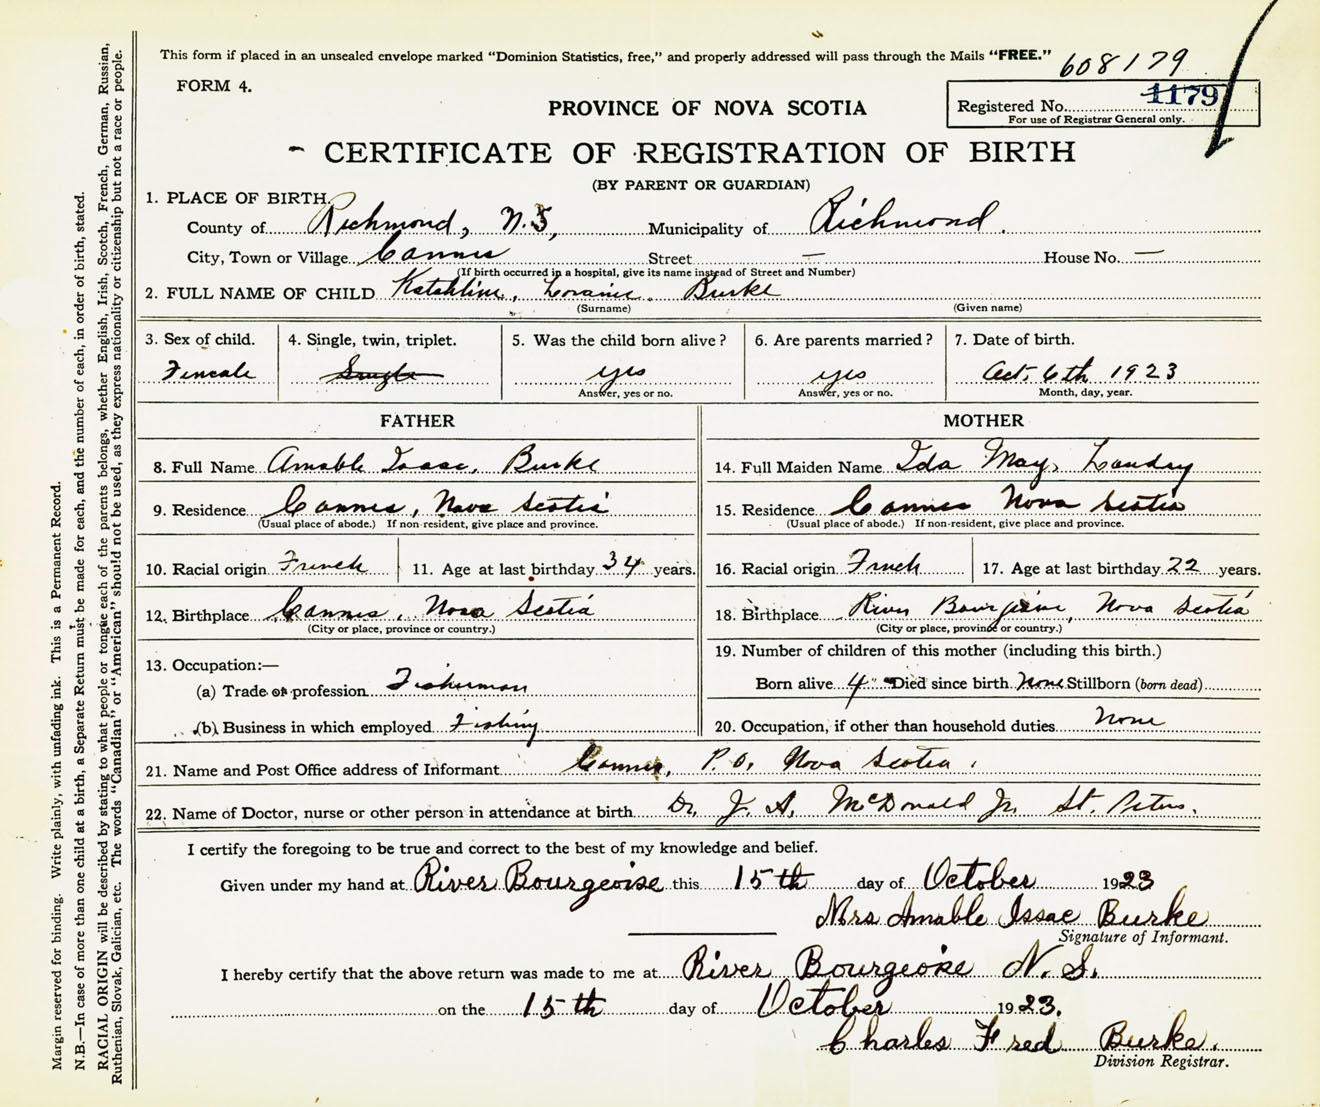 This form if placed in an unsealed envelope marked “Dominion Statistics, free,” and properly addressed will pass through the Mails “FREE.”
608179
FORM 4.
Registered No. 1179
For use of Registrar General only.
PROVINCE OF NOVA SCOTIA
CERTIFICATE OF REGISTRATION OF BIRTH
(BY PARENT OR GUARDIAN)
1. PLACE OF BIRTH.
County of Richmond, N.S, Municipality of Richmond.
City, Town or Village Cannes Street — House No. —
(If birth occurred in a hospital, give its name instead of Street and Number)
2. FULL NAME OF CHILD Katehline, Loraine Burke
(Surname) (Given name)
3. Sex of child. 4. Single, twin, triplet. 5. Was the child born alive? 6. Are parents married? 7. Date of birth.
Female Single yes yes Oct, 6th 1923
Answer, yes or no. Answer, yes or no. Month, day, year.
FATHER MOTHER
8. Full Name Amable Isaac, Burke 14. Full Maiden Name Ida May, Landry
9. Residence Cannes, Nova Scotia 15. Residence Cannes Nova Scotia
(Usual place of abode.) If non-resident, give place and province. (Usual place of abode.) If non-resident, give place and province.
10. Racial origin French 11. Age at last birthday 34 years. 16. Racial origin Fruch 17. Age at last birthday 22 years.
12. Birthplace Cannes, Nova Scotia 18. Birthplace River Bourgeoise, Nova Scotia
(City or place, province or country.) (City or place, province or country.)
13. Occupation:—
(a) Trade or profession Fisherman
(b) Business in which employed Fishing
19. Number of children of this mother (including this birth.)
Born alive 4 Died since birth None Stillborn (born dead)
20. Occupation, if other than household duties None
21. Name and Post Office address of Informant Cannes, P.O, Nova Scotia.
22. Name of Doctor, nurse or other person in attendance at birth Dr, J. A, McDonald Jr. St. Peters.
I certify the foregoing to be true and correct to the best of my knowledge and belief.
Given under my hand at River Bourgeoise this 15th day of October 1923
Mrs Amable Issac Burke
Signature of Informant.
I hereby certify that the above return was made to me at River Bourgeoise N. S.
on the 15th day of October 1923.
Charles Fred Burke.
Division Registrar.
Margin reserved for binding. Write plainly, with unfading ink. This is a Permanent Record.
N.B.—In case of more than one child at a birth, a Separate Return must be made for each, and the number of each, in order of birth, stated.
RACIAL ORIGIN will be described by stating to what people or tongue each of the parents belongs, whether English, Irish, Scotch, French, German, Russian,
Ruthenian, Slovak, Galician, etc. The words “Canadian” or “American” should not be used, as they express nationality or citizenship but not a race or people.